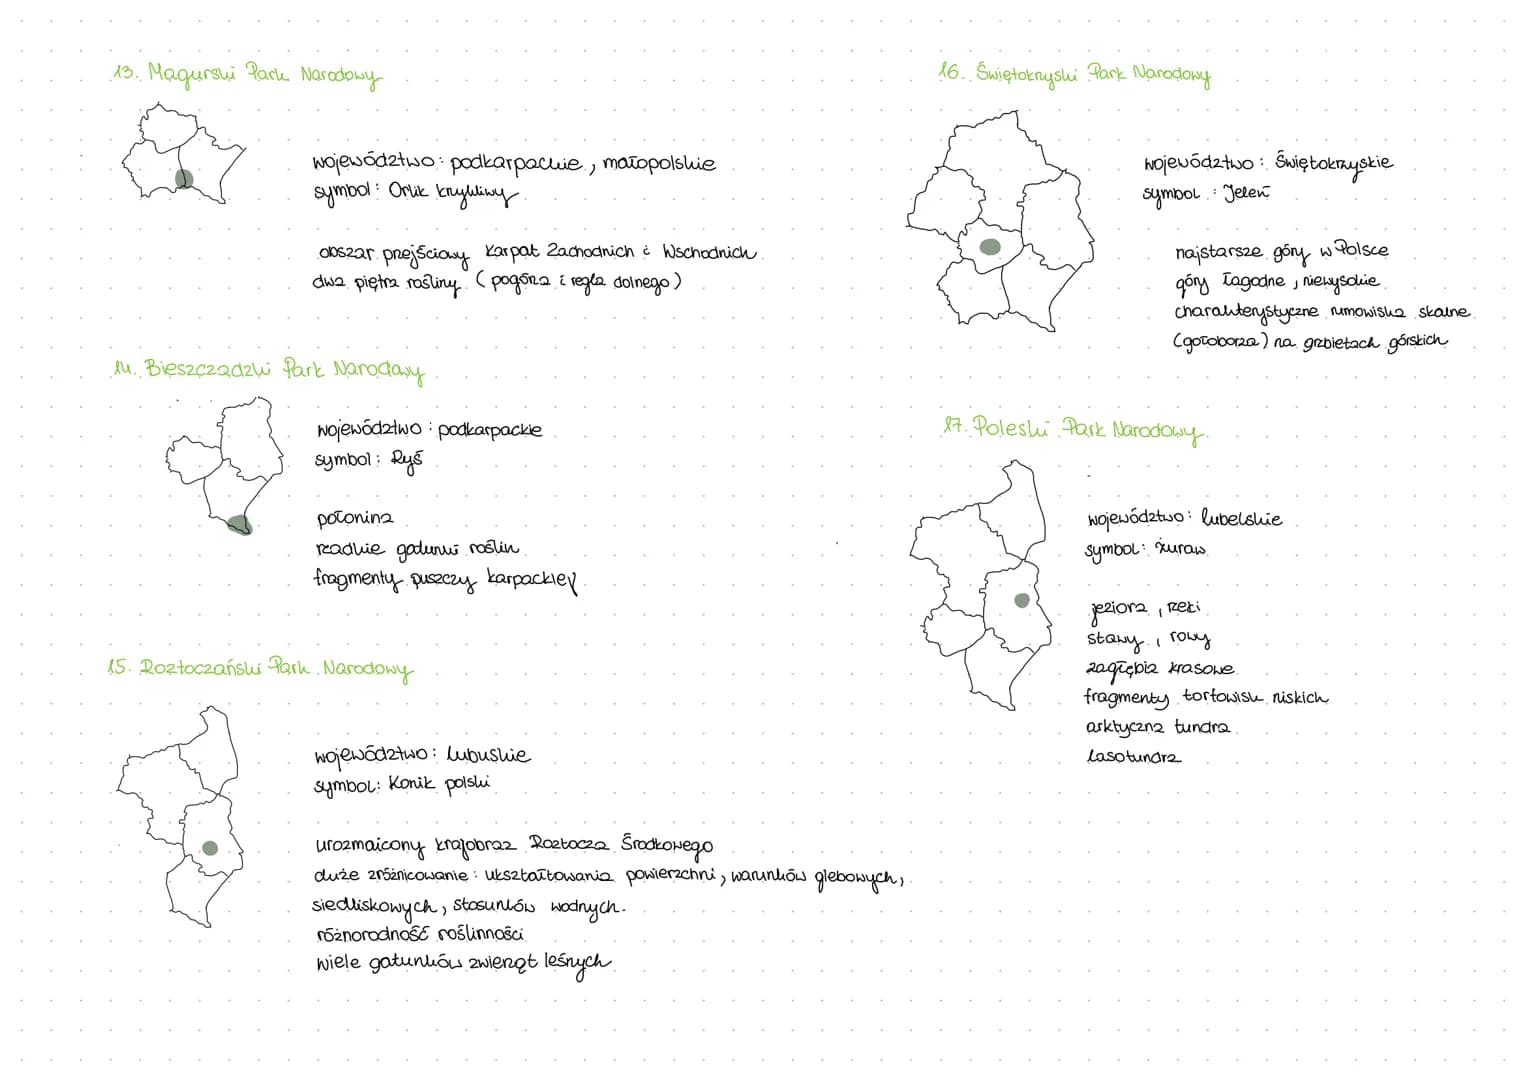 13. Magurski Park Narodowy
województwo: podkarpackie, małopolskie
symbol: Orlik krzykliwy
obszar przejściowy Karpat Zachodnich i Wschodnich
dwa piętra rośliny (pogórza i regla dolnego)
14. Bieszczadzki Park Narodowy
województwo: podkarpackie
symbol: Ryś
połonina
rzadkie gatunki roślin
fragmenty puszczy karpackiej
15. Roztoczański Park Narodowy
województwo: lubuskie
symbol: Konik polski
urozmaicony krajobraz Roztocza Środkowego
duże zróżnicowanie: ukształtowania powierzchni, warunków glebowych,
siedliskowych, stosunków wodnych.
różnorodność roślinności
wiele gatunków zwierząt leśnych
16. Świętokrzyski Park Narodowy
województwo: Świętokrzyskie
symbol: Jeleń
najstarsze góry w Polsce
góry łagodne, niewysokie
charakterystyczne rumowiska skalne
(gołoborza) na grzbietach górskich
17. Poleski Park Narodowy
województwo: lubelskie
symbol: żuraw
jeziora, rzeki
stawy, rowy
zagłębia krasowe
fragmenty torfowisk niskich
arktyczna tundra
lasotundra